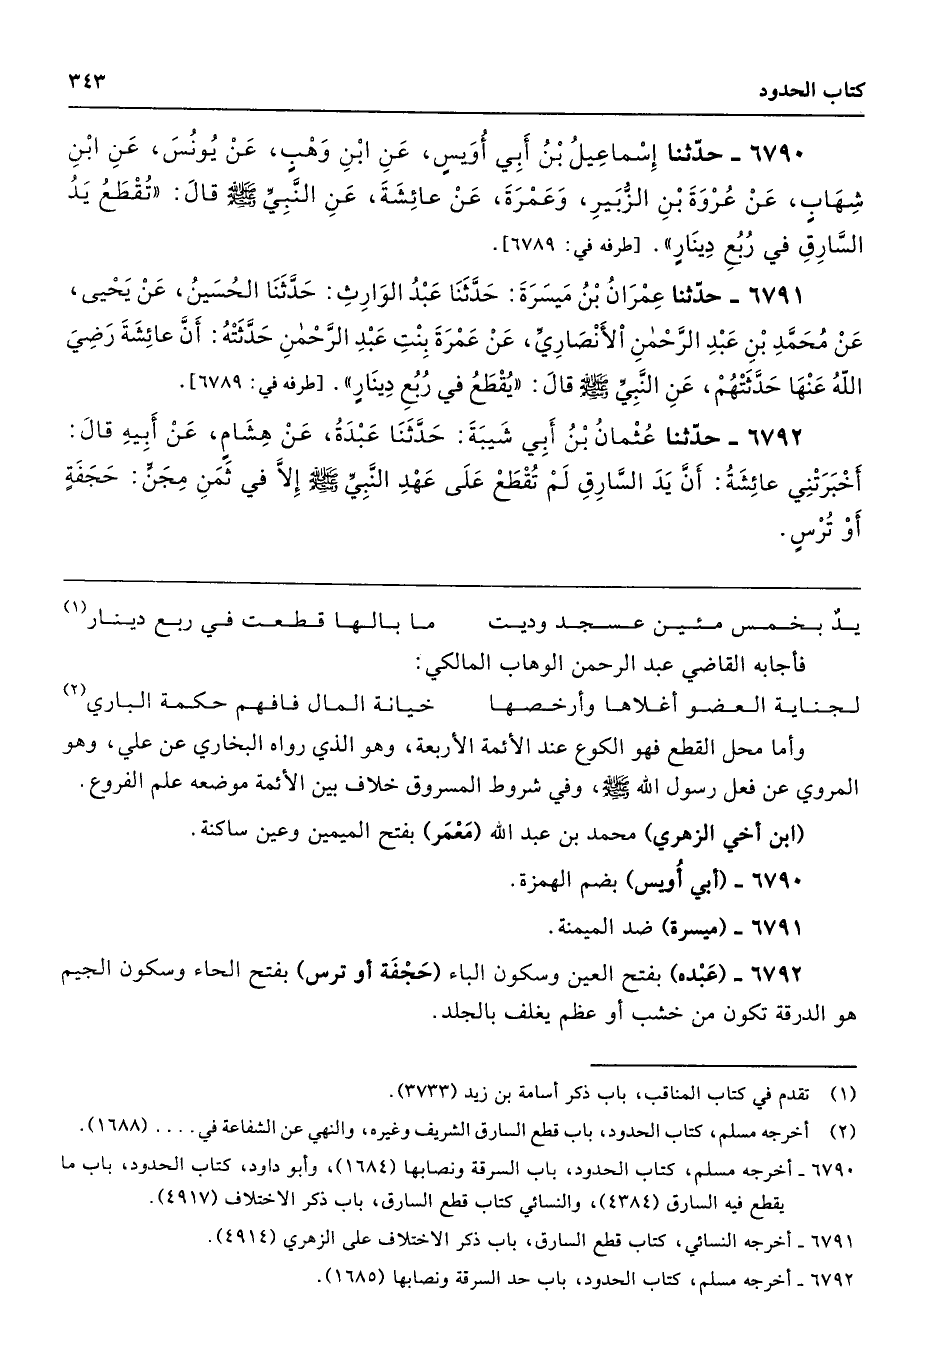 كتاب الحدود ٣٤٣
٦٧٩٠ ـ حدّثنا إِسْماعِيلُ بْنُ أَبِي أُوَيسٍ، عَنِ ابْنِ وَهْبٍ، عَنْ يُونُسَ، عَنِ ابْنِ
شِهَابٍ، عَنْ عُرْوَةَ بْنِ الزُّبَيرِ، وَعَمْرَةَ، عَنْ عائِشَةَ، عَنِ النَّبِيِّ ﷺ قالَ: «تُقْطَعُ يَدُ
السَّارِقِ في رُبُعِ دِينَارٍ». [طرفه في: ٦٧٨٩].
٦٧٩١ ـ حدّثنا عِمْرَانُ بْنُ مَيسَرَةَ: حَدَّثَنَا عَبْدُ الوَارِثِ: حَدَّثَنَا الحُسَينُ، عَنْ يَحْيى،
عَنْ مُحَمَّدِ بْنِ عَبْدِ الرَّحْمٰنِ الأَنْصَارِيِّ، عَنْ عَمْرَةَ بِنْتِ عَبْدِ الرَّحْمٰنِ حَدَّثَتْهُ: أَنَّ عائِشَةَ رَضِيَ
اللّهُ عَنْهَا حَدَّثَتْهُمْ، عَنِ النَّبِيِّ ﷺ قالَ: «يُقْطَعُ في رُبُعِ دِينَارٍ». [طرفه في: ٦٧٨٩].
٦٧٩٢ ـ حدّثنا عُثْمانُ بْنُ أَبِي شَيبَةَ: حَدَّثَنَا عَبْدَةُ، عَنْ هِشَامٍ، عَنْ أَبِيهِ قالَ:
أَخْبَرَتْنِي عائِشَةُ: أَنَّ يَدَ السَّارِقِ لَمْ تُقْطَعْ عَلَى عَهْدِ النَّبِيِّ ﷺ إِلاَّ في ثَمَنِ مِجَنٍّ: حَجَفَةٍ
أَوْ تُرْسٍ.
يـدٌ بـخـمـس مـئـيـن عـسـجـد وديـت مـا بـالـهـا قـطـعـت فـي ربـع ديـنـار(١)
فأجابه القاضي عبد الرحمن الوهاب المالكي:
لـجـنـايـة الـعـضـو أغـلاهـا وأرخـصـهـا خـيـانـة الـمـال فـافـهـم حـكـمـة الـباري(٢)
وأما محل القطع فهو الكوع عند الأئمة الأربعة، وهو الذي رواه البخاري عن علي، وهو
المروي عن فعل رسول الله ﷺ، وفي شروط المسروق خلاف بين الأئمة موضعه علم الفروع.
(ابن أخي الزهري) محمد بن عبد الله (مَعْمَر) بفتح الميمين وعين ساكنة.
٦٧٩٠ ـ (أبي أُويس) بضم الهمزة.
٦٧٩١ ـ (ميسرة) ضد الميمنة.
٦٧٩٢ ـ (عَبْده) بفتح العين وسكون الباء (حَجْفَة أو ترس) بفتح الحاء وسكون الجيم
هو الدرقة تكون من خشب أو عظم يغلف بالجلد.
(١) تقدم في كتاب المناقب، باب ذكر أسامة بن زيد (٣٧٣٣).
(٢) أخرجه مسلم، كتاب الحدود، باب قطع السارق الشريف وغيره، والنهي عن الشفاعة في.... (١٦٨٨).
٦٧٩٠ ـ أخرجه مسلم، كتاب الحدود، باب السرقة ونصابها (١٦٨٤)، وأبو داود، كتاب الحدود، باب ما
يقطع فيه السارق (٤٣٨٤)، والنسائي كتاب قطع السارق، باب ذكر الاختلاف (٤٩١٧).
٦٧٩١ ـ أخرجه النسائي، كتاب قطع السارق، باب ذكر الاختلاف على الزهري (٤٩١٤).
٦٧٩٢ ـ أخرجه مسلم، كتاب الحدود، باب حد السرقة ونصابها (١٦٨٥).